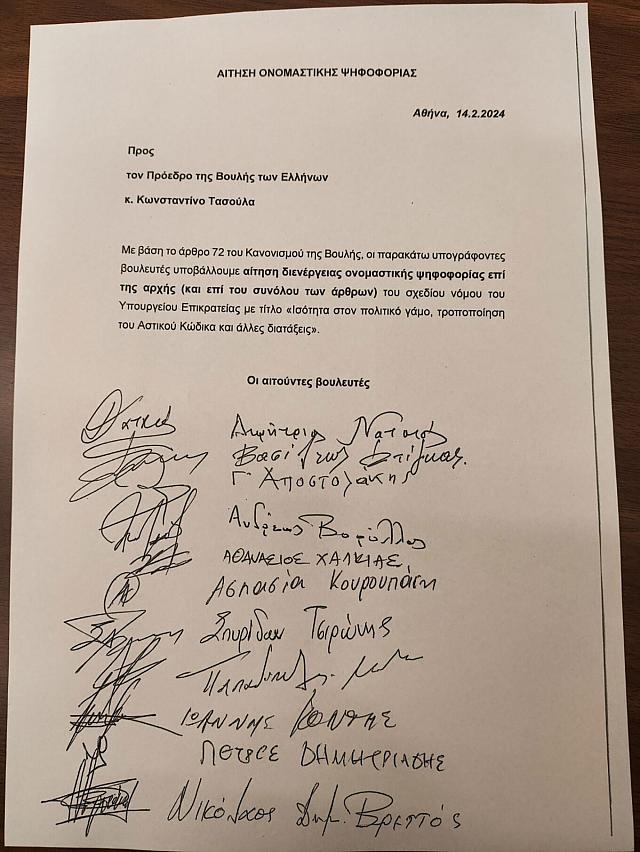 ΑΙΤΗΣΗ ΟΝΟΜΑΣΤΙΚΗΣ ΨΗΦΟΦΟΡΙΑΣ
Αθήνα, 14.2.2024
Προς
τον Πρόεδρο της Βουλής των Ελλήνων
κ. Κωνσταντίνο Τασούλα
Με βάση το άρθρο 72 του Κανονισμού της Βουλής, οι παρακάτω υπογράφοντες
βουλευτές υποβάλλουμε αίτηση διενέργειας ονομαστικής ψηφοφορίας επί
της αρχής (και επί του συνόλου των άρθρων) του σχεδίου νόμου του
Υπουργείου Επικρατείας με τίτλο «Ισότητα στον πολιτικό γάμο, τροποποίηση
του Αστικού Κώδικα και άλλες διατάξεις».
Οι αιτούντες βουλευτές
Δημήτριος Νατσιός
Βασίλειος Στίγκας
Γ. Αποστολάκης
Ανδρέας Βορύλλας
ΑΘΑΝΑΣΙΟΣ ΧΑΛΚΙΑΣ
Ασπασία Κουρουπάκη
Σπυρίδων Τσιρώνης
ΙΩΑΝΝΗΣ ΚΟΝΤΗΣ
ΠΕΤΡΟΣ ΔΗΜΗΤΡΙΑΔΗΣ
Νικόλαος Δημ. Βρεττός